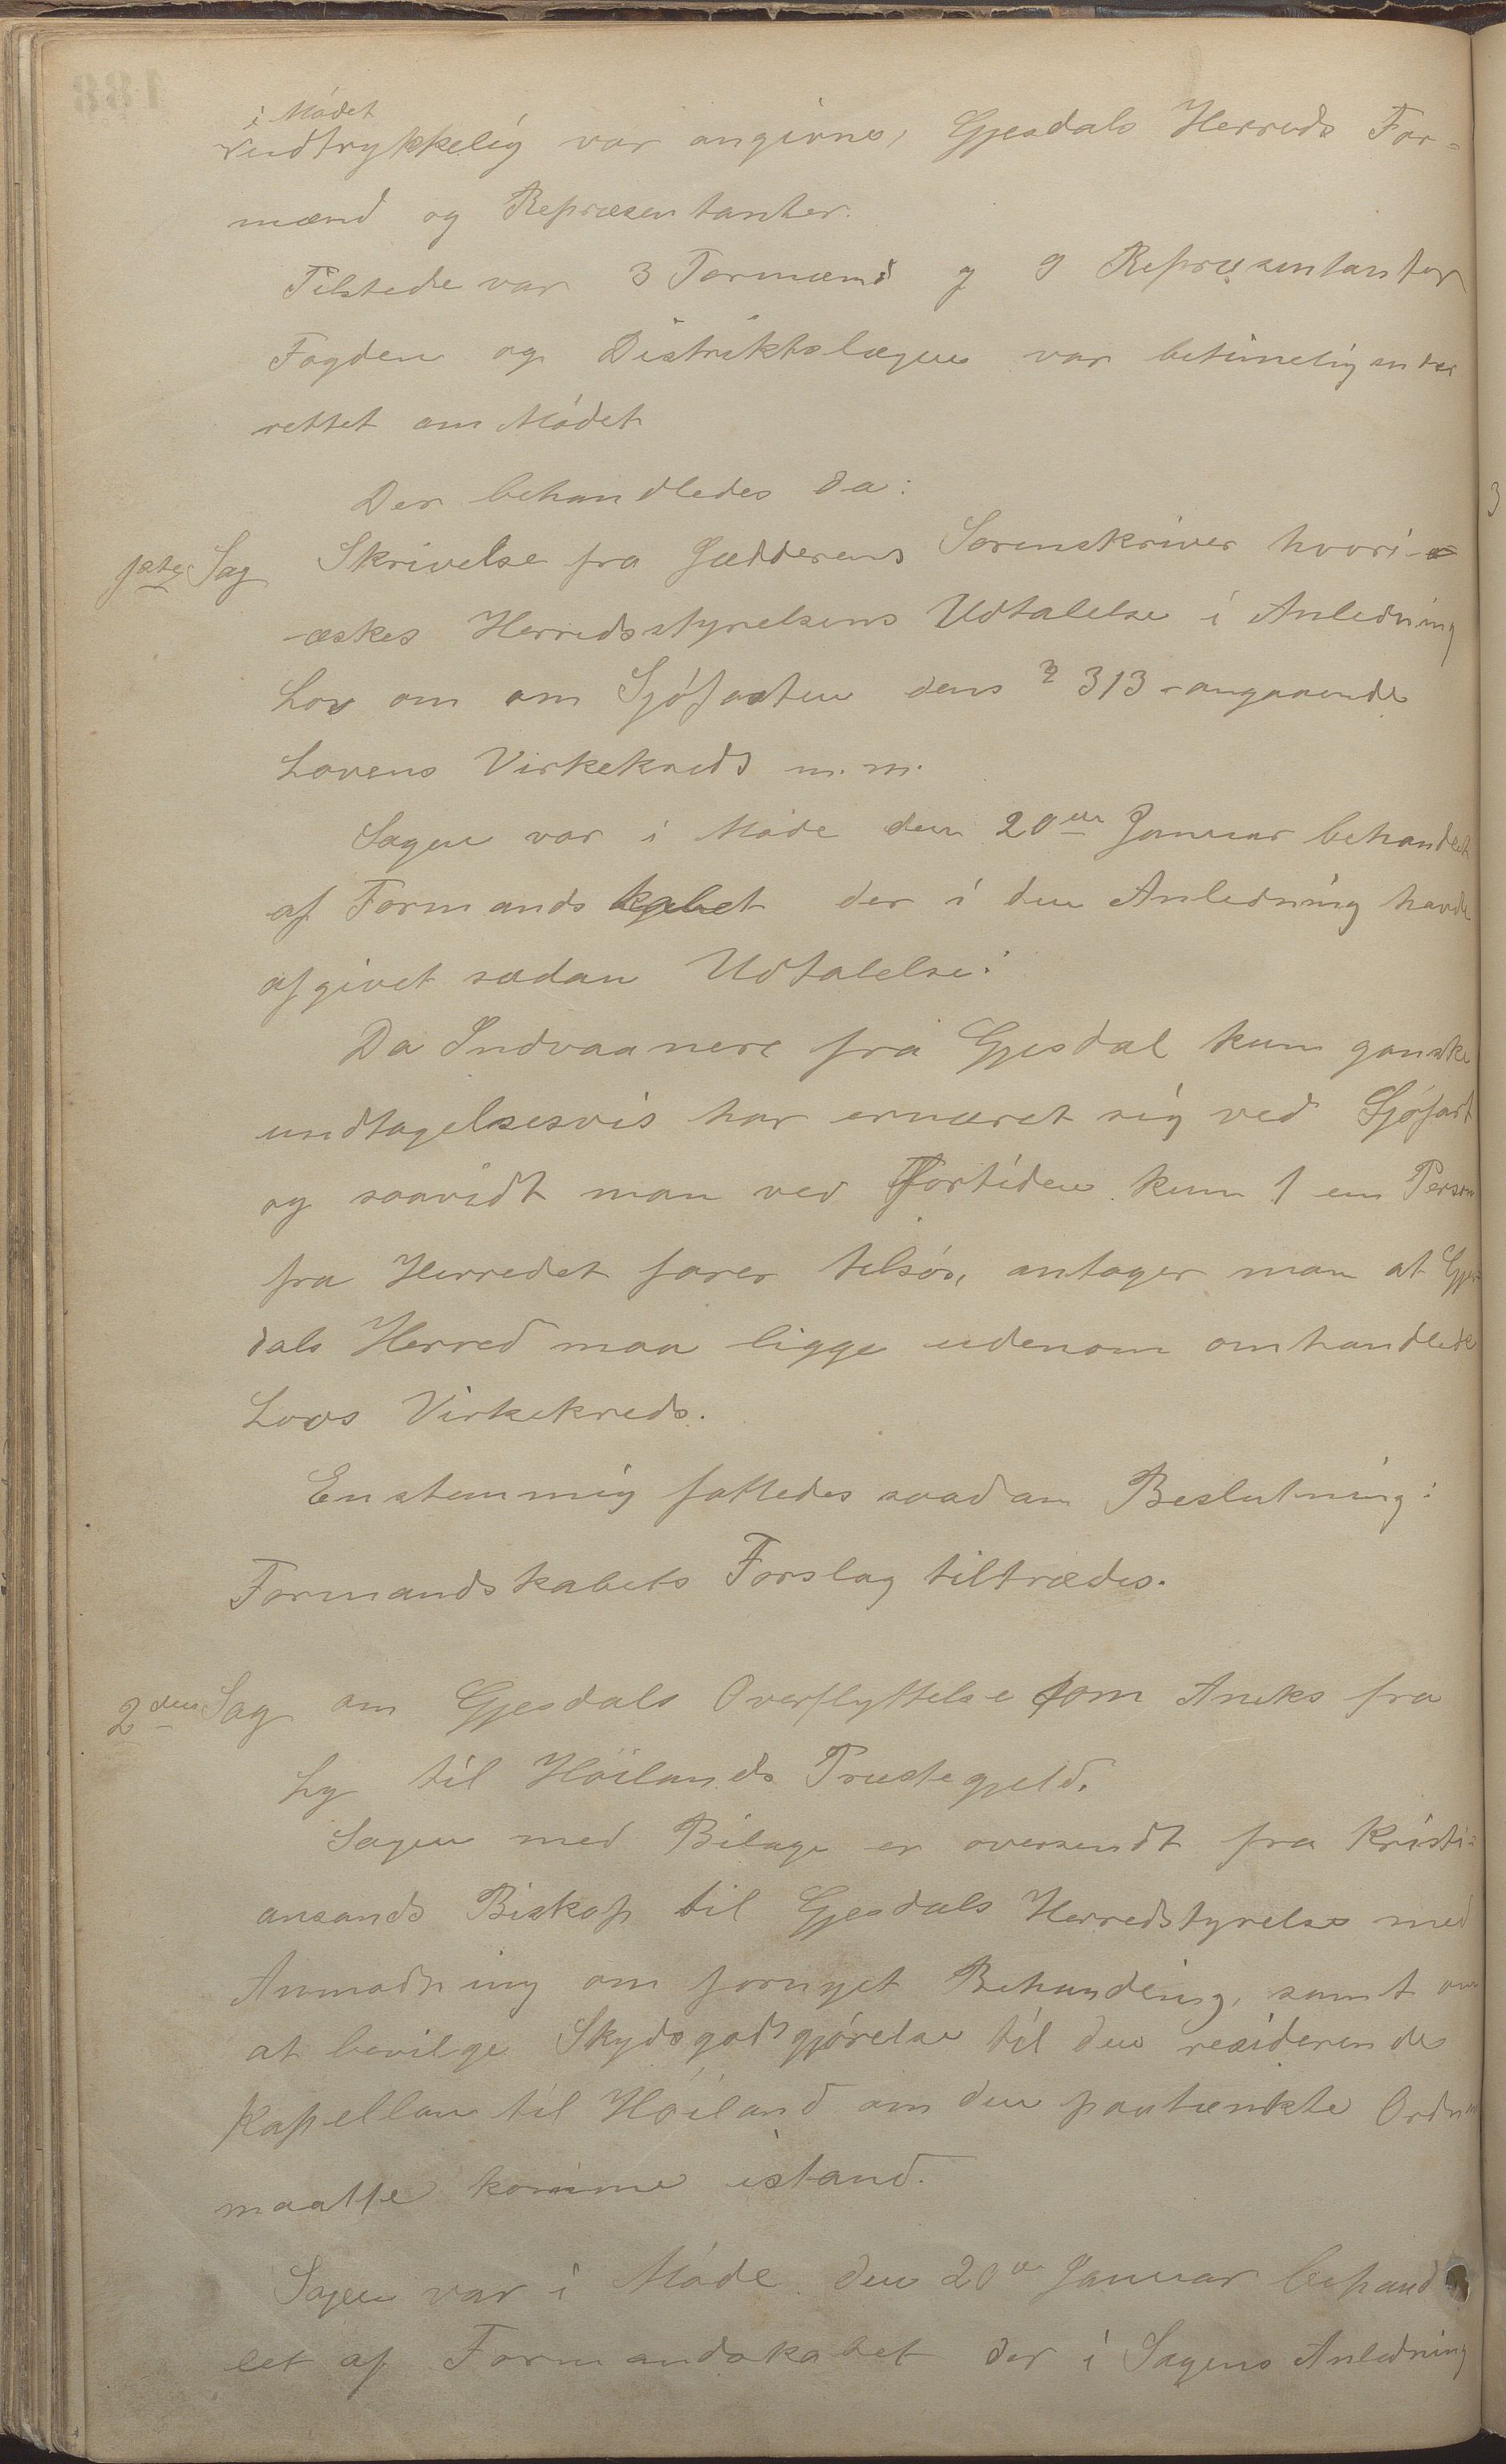 i Mødet
udtrykkelig var angivne, Gjesdals Herreds For-
mænd og Repræsentanter.
Tilstede var 3 Formænd og 9 Repræsentanter
Fogden og Distriktslægen var betimelig under
rettet om Mødet
Der behandledes da:
1ste Sag Skrivelse fra Jædderens Sorenskriver hvori-
æskes Herredsstyrelsens Udtalelse i Anledning
Lov om om Sjøfarten dens § 313 - angaaende
Lovens Virkekreds m.m.
Sagen var i Møde den 20en Januar behandlet
af Formandskabet der i den Anledning havde
afgivet sadan Udtalelse:
Da Indvaanere fra Gjesdal kun ganske
undtagelsesvis har ernæret sig ved Sjøfart
og saavidt man ved fortiden kun 1 en Person
fra Herredet farer tilsøs, antager man at Gjes
dals Herred maa ligge udenom omhandlede
Lovs Virkekreds.
Enstemmig fattedes saadan Beslutning:
Formandskabets Forslag tiltrædes.
2den Sag om Gjesdals Overflyttelse som Aneks fra
Ly til Høilands Præstegjeld.
Sagen med Bilage er oversendt fra Kristi-
ansands Biskop til Gjesdals Herredstyrelse med
Anmodning om fornyet Behandling, samt om
at bevilge Skydsgodtgjørelse til den residerende
Kapellan til Høiland om den paatænkte Ordn
maatte komme istand.
Sagen var i Møde den 20de Januar behand
let af Formandskabet der i Sagens Anledning
3
188